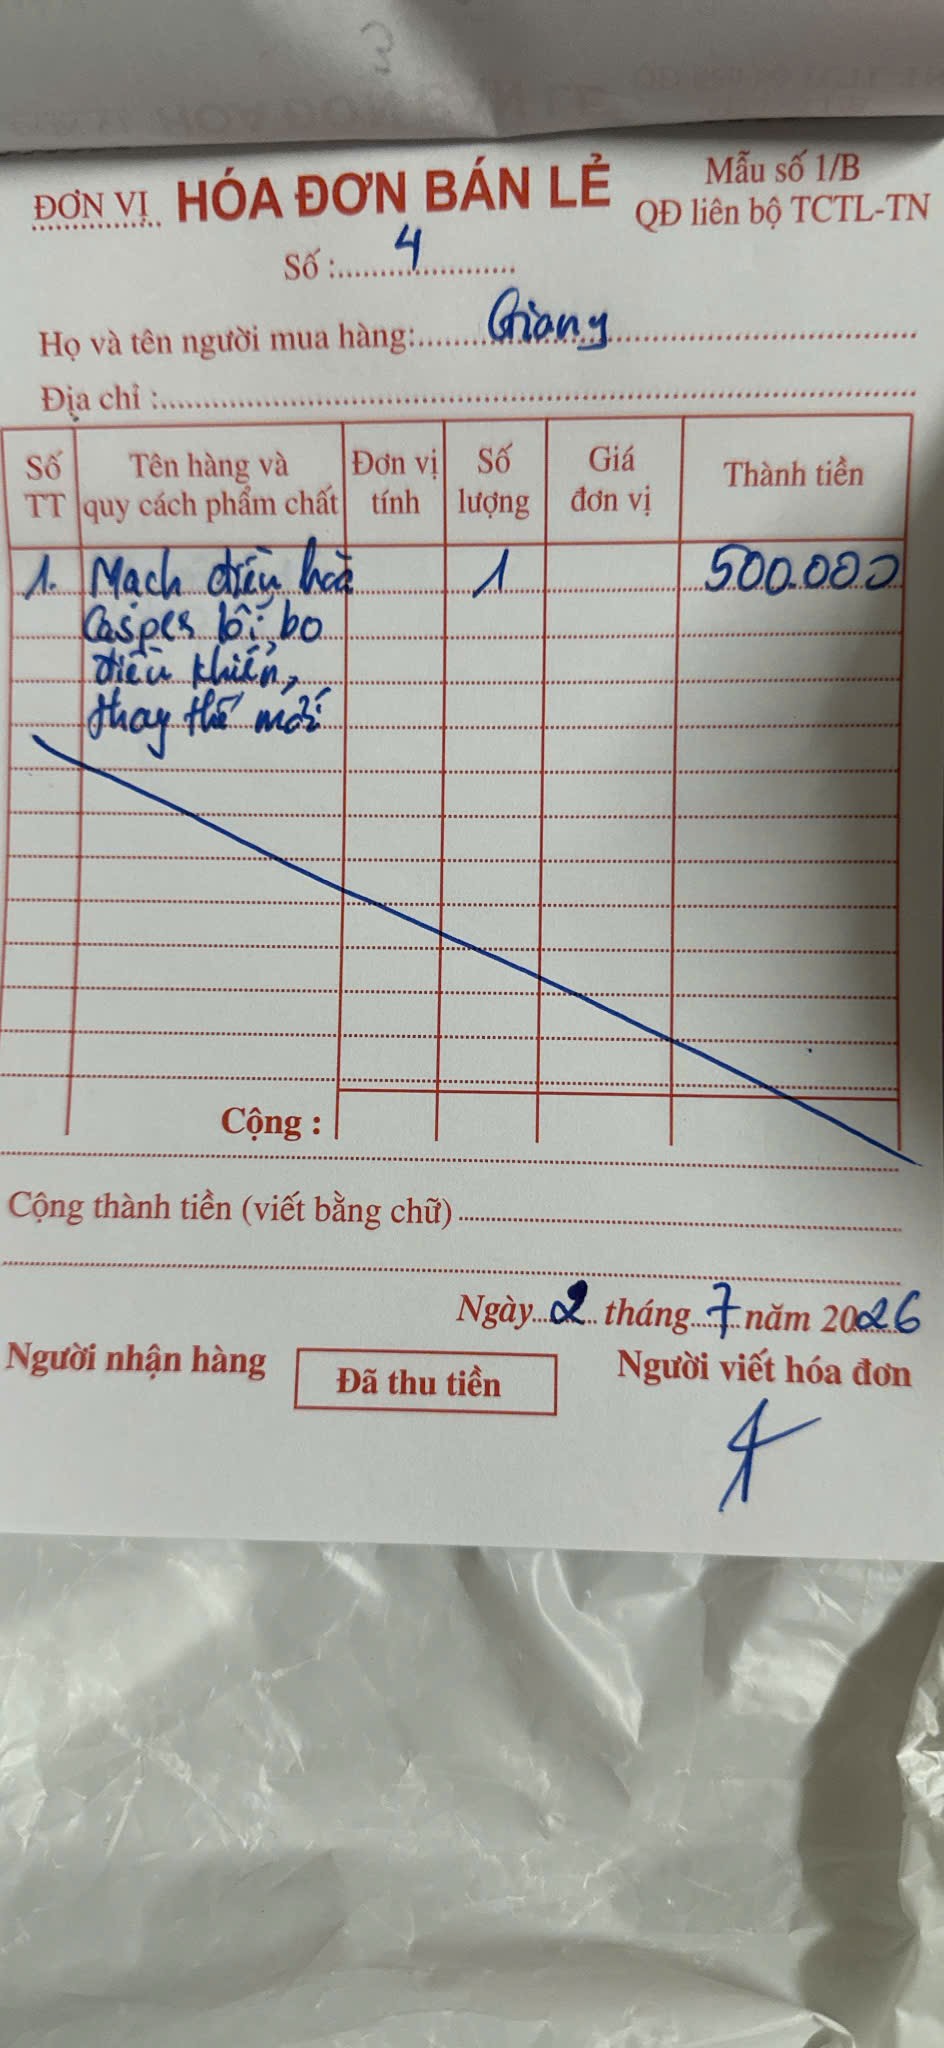 ĐƠN VỊ HÓA ĐƠN BÁN LẺ Mẫu số 1/B
QĐ liên bộ TCTL-TN
Số : 4
Họ và tên người mua hàng: Giang
Địa chỉ :
Số TT Tên hàng và quy cách phẩm chất Đơn vị tính Số lượng Giá đơn vị Thành tiền
1. Mạch điều hoà 1 500.000
Casper lỗi bo
điều khiển,
thay thế mới
Cộng :
Cộng thành tiền (viết bằng chữ)
Ngày 2 tháng 7 năm 2026
Người nhận hàng Đã thu tiền Người viết hóa đơn